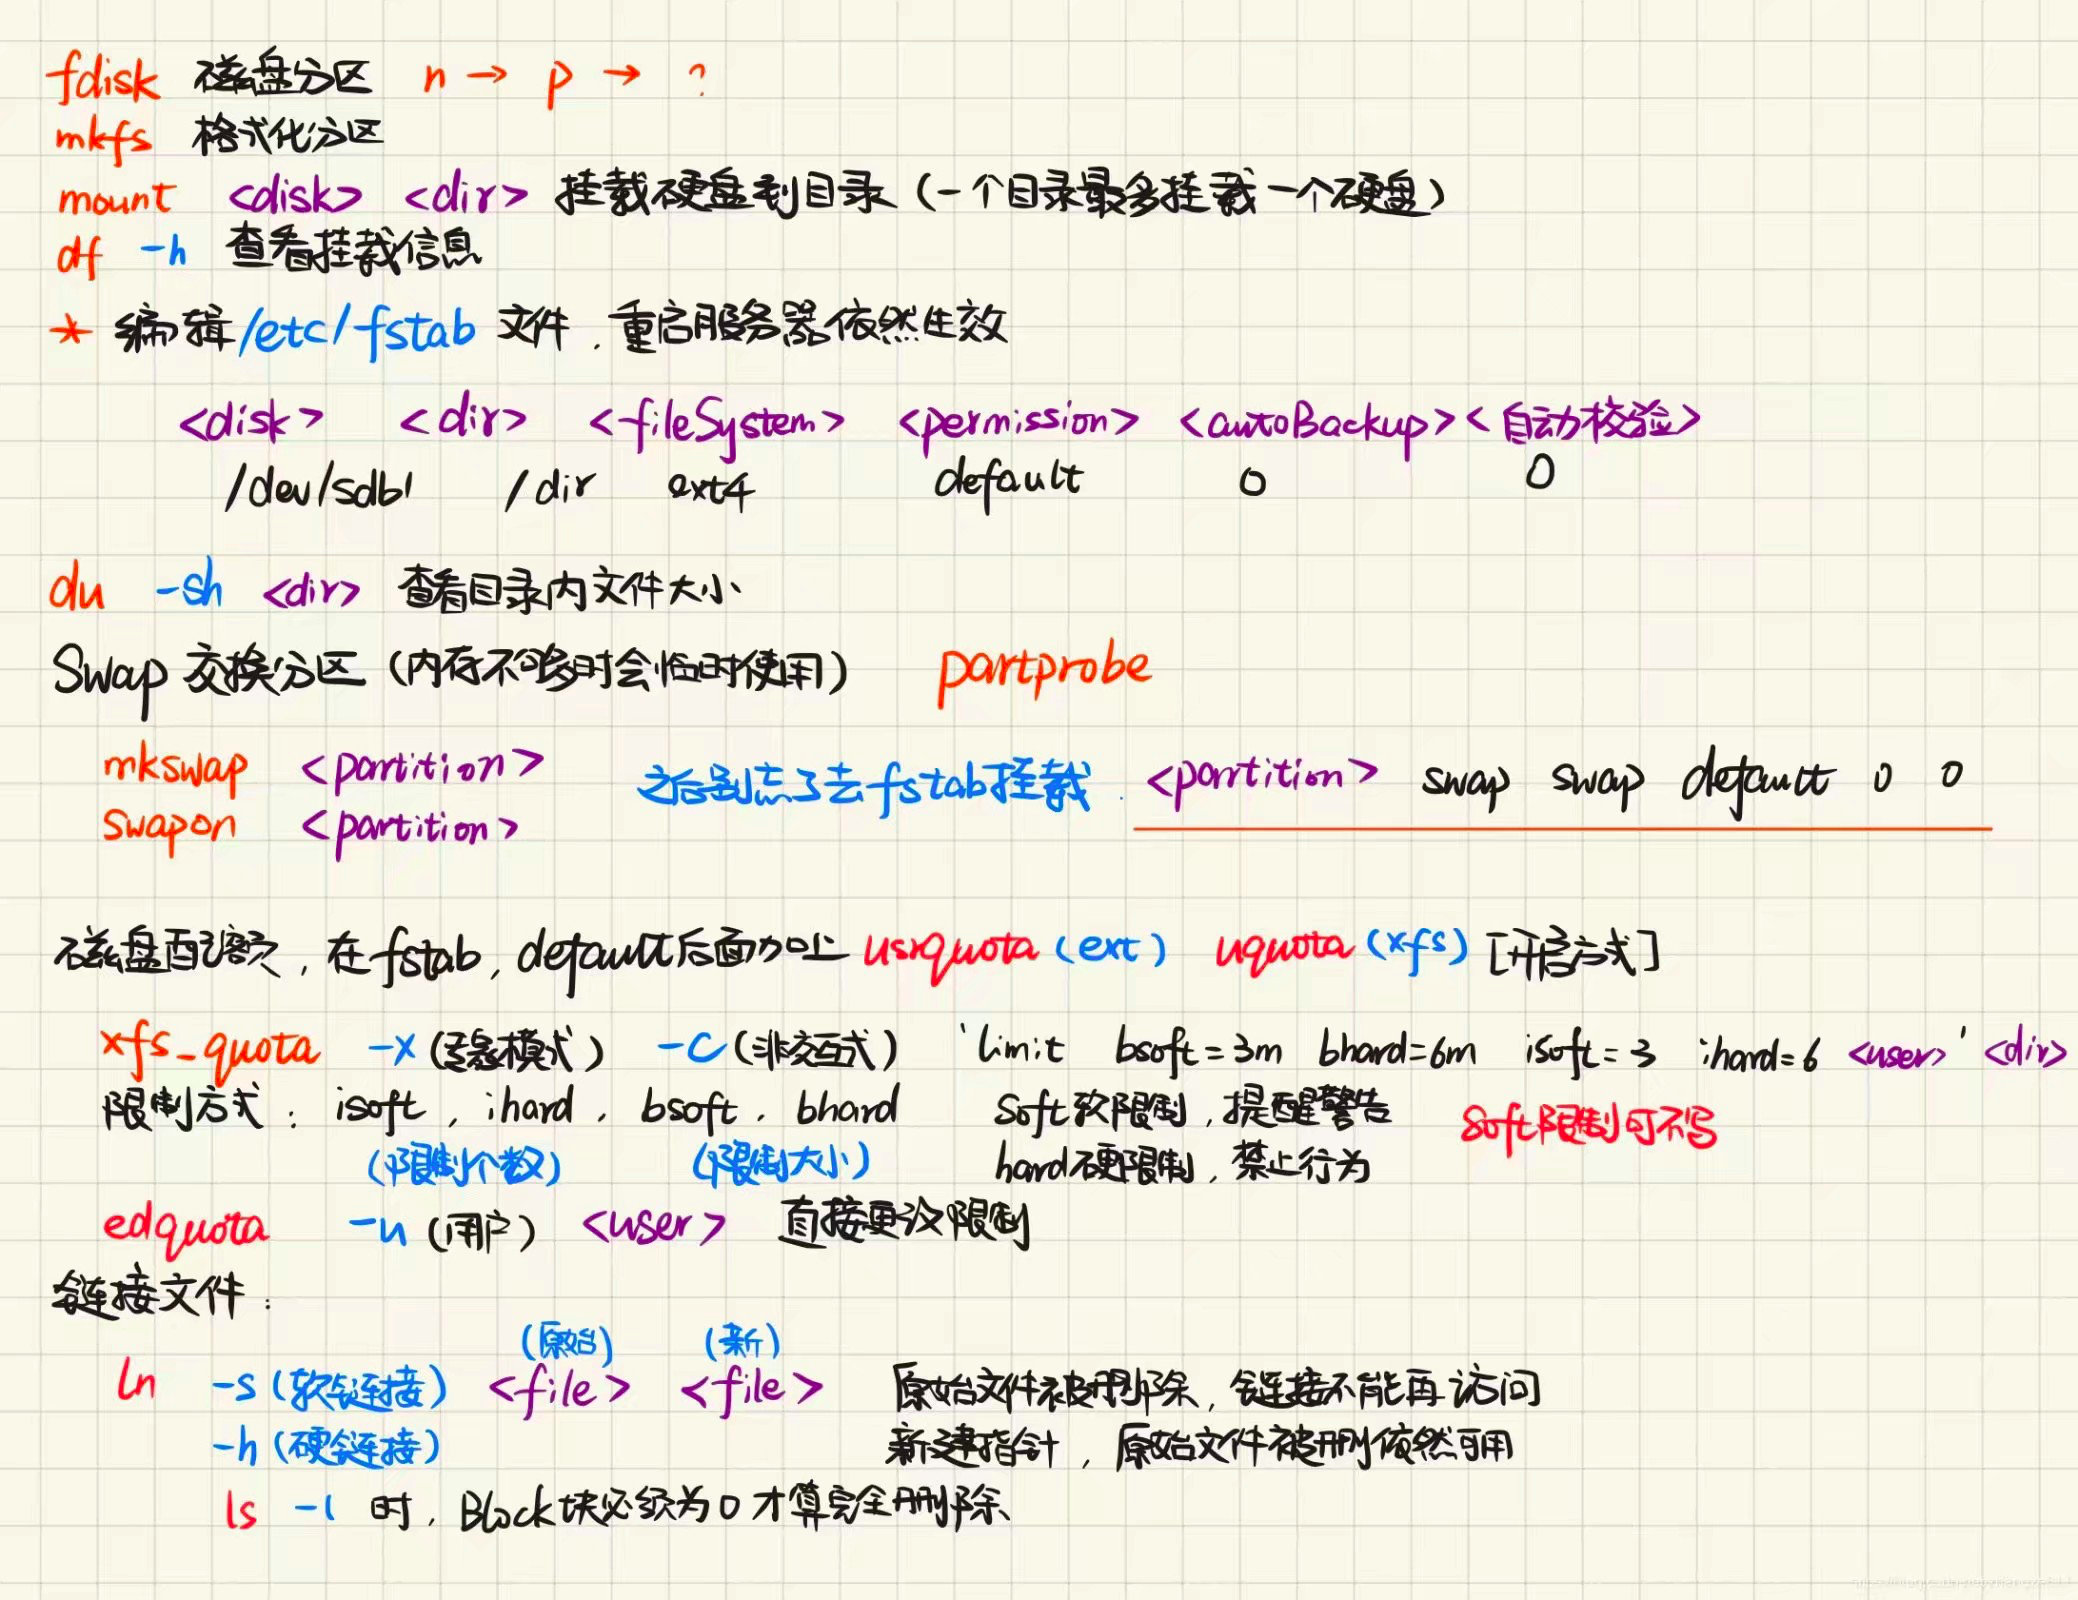 fdisk 磁盘分区 n → p → ?
mkfs 格式化分区
mount <disk> <dir> 挂载硬盘到目录（一个目录最多挂载一个硬盘）
df -h 查看挂载信息
* 编辑/etc/fstab 文件，重启服务器依然生效
<disk> <dir> <fileSystem> <permission> <autoBackup> <自动校验>
/dev/sdb1 /dir ext4 default 0 0
du -sh <dir> 查看目录内文件大小
Swap 交换分区（内存不够时会临时使用） partprobe
mkswap <partition> 之后别忘了去fstab挂载. <partition> swap swap default 0 0
swapon <partition>
磁盘配额，在fstab，default后面加上 usrquota (ext) uquota (xfs) [开启方式]
xfs_quota -x (专家模式) -c (非交互式) 'limit bsoft=3m bhard=6m isoft=3 ihard=6 <user>' <dir>
限制方式：isoft, ihard, bsoft, bhard soft软限制，提醒警告 soft限制可不写
(限制个数) (限制大小) hard硬限制，禁止行为
edquota -u (用户) <user> 直接更改限制
链接文件：
(原始) (新)
ln -s (软链接) <file> <file> 原始文件被删除，链接不能再访问
-h (硬链接) 新建指针，原始文件被删依然可用
ls -l 时，Block块必须为0才算完全删除